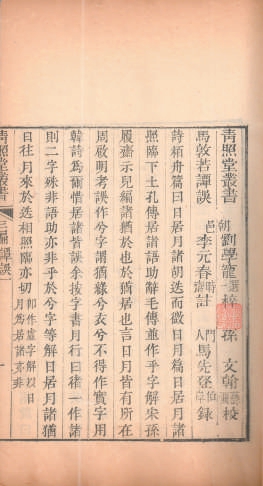 青照堂叢書
朝邑 劉學寵 選梓 孫 文翰 校
李元春 時齋 訂 門人 馬先登 伯岸 錄
馬敦若譚誤
詩栢舟篇曰日居月諸胡迭而微日月篇日居月諸
照臨下土孔傳居諸語助辭毛傳並作乎字解宋孫
履齋示兒編諸猶於也於萬言日月皆有所在
周啟明考誤作兮字謂猶綠兮衣兮不得作實字用
韓詩為爾惜居諸皆誤余按字書月行曰 一作諸
則二字殊非語助亦非乎於兮字等解日居月諸猶
日往月來於迭相照臨亦切 卽作虛字解以日
月為居諸亦非
青照堂叢書
三編 譚誤
一